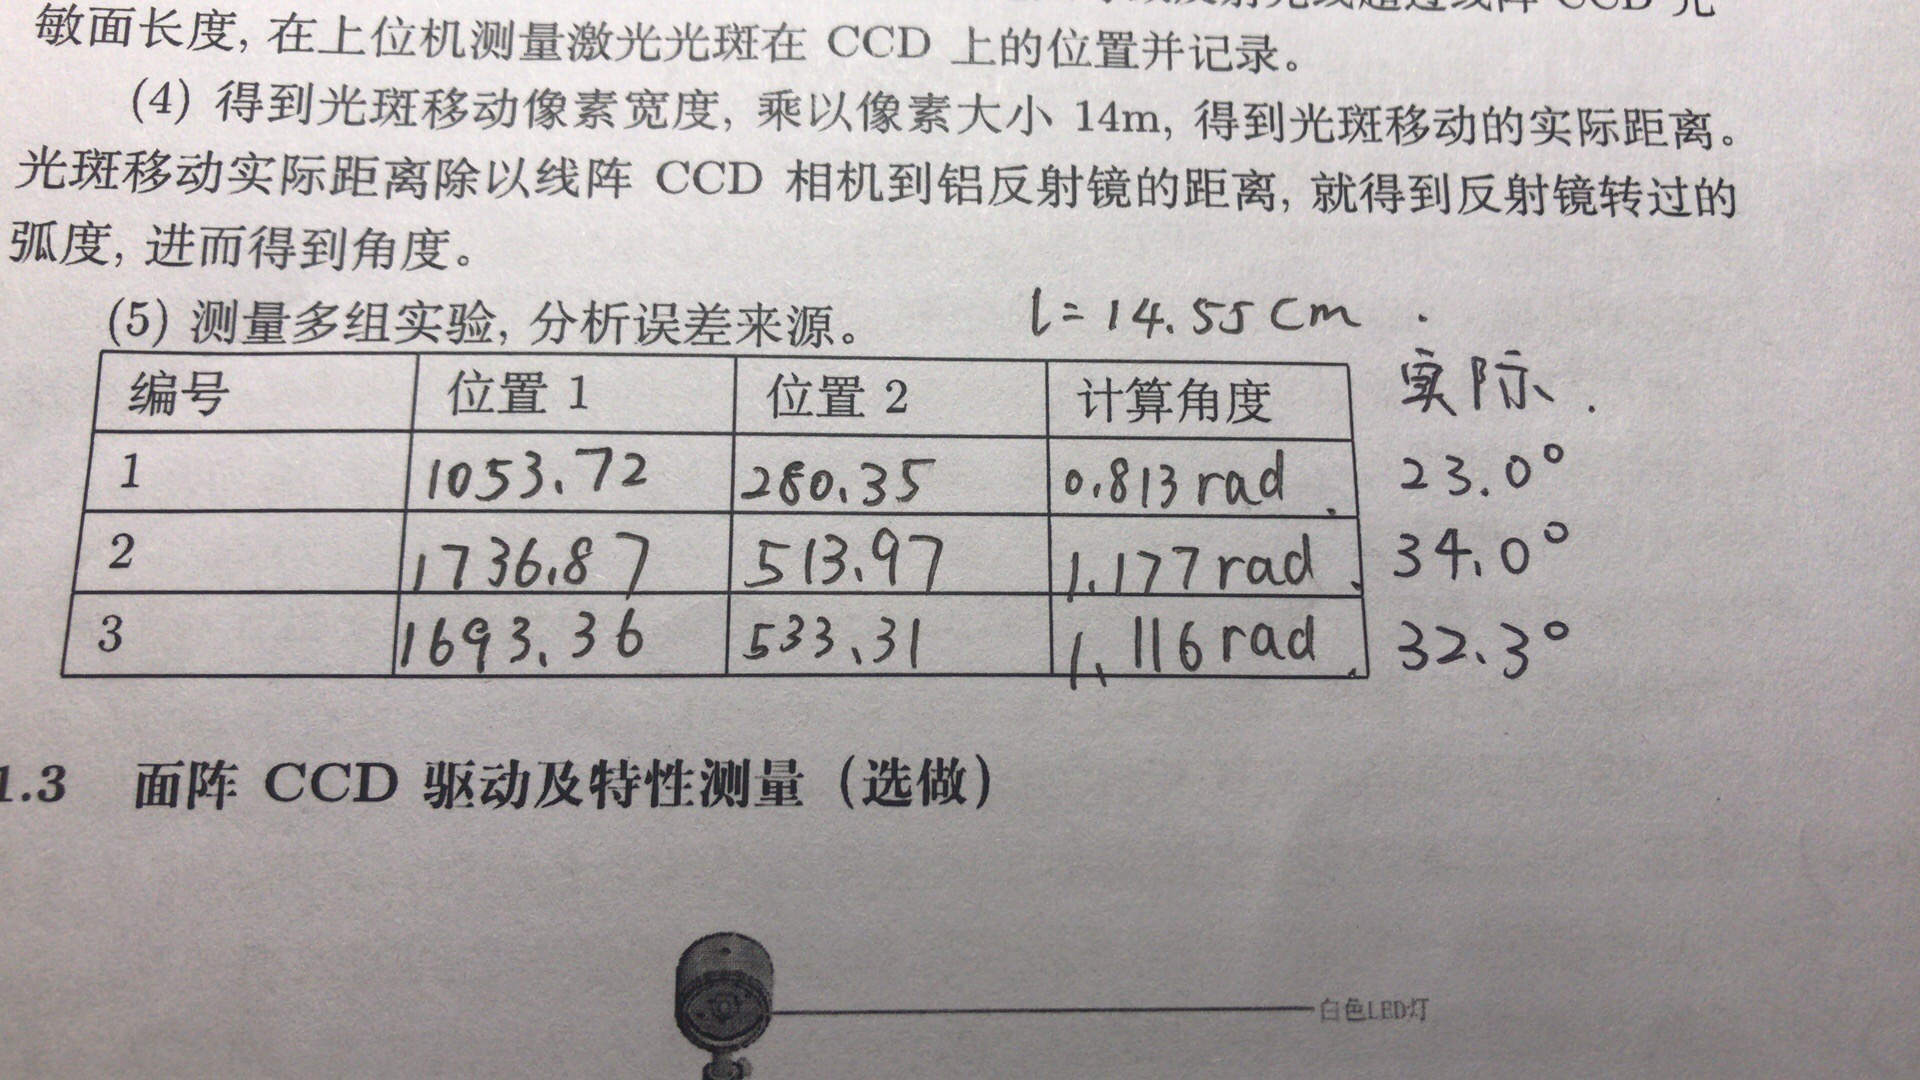 敏面长度, 在上位机测量激光光斑在 CCD 上的位置并记录。
(4) 得到光斑移动像素宽度, 乘以像素大小 14m, 得到光斑移动的实际距离。
光斑移动实际距离除以线阵 CCD 相机到铝反射镜的距离, 就得到反射镜转过的
弧度, 进而得到角度。
(5) 测量多组实验, 分析误差来源。 l = 14.55 cm .
编号 位置 1 位置 2 计算角度 实际.
1 1053.72 280.35 0.813 rad. 23.0°
2 1736.87 513.97 1.177 rad. 34.0°
3 1693.36 533.31 1.116 rad. 32.3°
1.3 面阵 CCD 驱动及特性测量 (选做)
白色LED灯